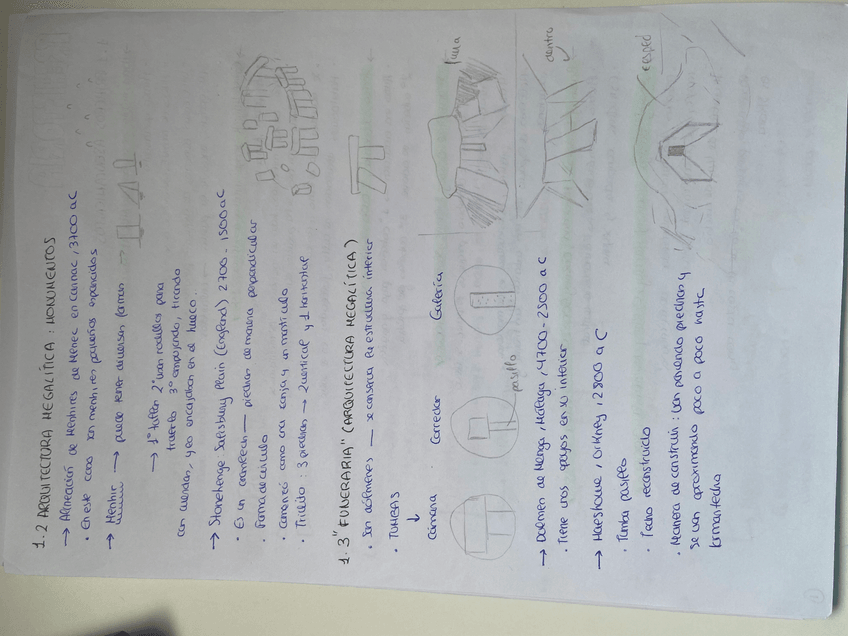 1.2 ARQUITECTURA MEGALÍTICA: MONUMENTOS
→ Alineación de Menhires de Ménec en Carnac, 3700 a C
· En este caso son menhires pequeños separados
→ Menhir → puede tener diversas formas →
→ 1º tallan 2º usan rodillos para
traerlo 3º empujando, tirando
con cuerdas, y lo encajaban en el hueco.
→ Stonehenge Salisbury Plain (England) 2700 - 1500 a C
· Es un cromlech — piedras de manera perpendicular
· Forma de círculo
· Comenzó como una zanja y un montículo
· Trilito: 3 piedras → 2 vertical y 1 horizontal
1.3 "FUNERARIA" (ARQUITECTURA MEGALÍTICA)
· Son dólmenes — se conserva la estructura interior
· TUMBAS
↓
Cámara Corredor Galería
pasillo
fuera
→ Dolmen de Menga, Málaga, 4700 - 2500 a C
· Tiene unos apoyos en su interior
dentro
→ Maeshowe, Orkney, 2800 a C
· Tumba pasillo
· Techo reconstruido
· Manera de construir: van poniendo piedras y
se van aproximando poco a poco hasta
formar techo
cesped